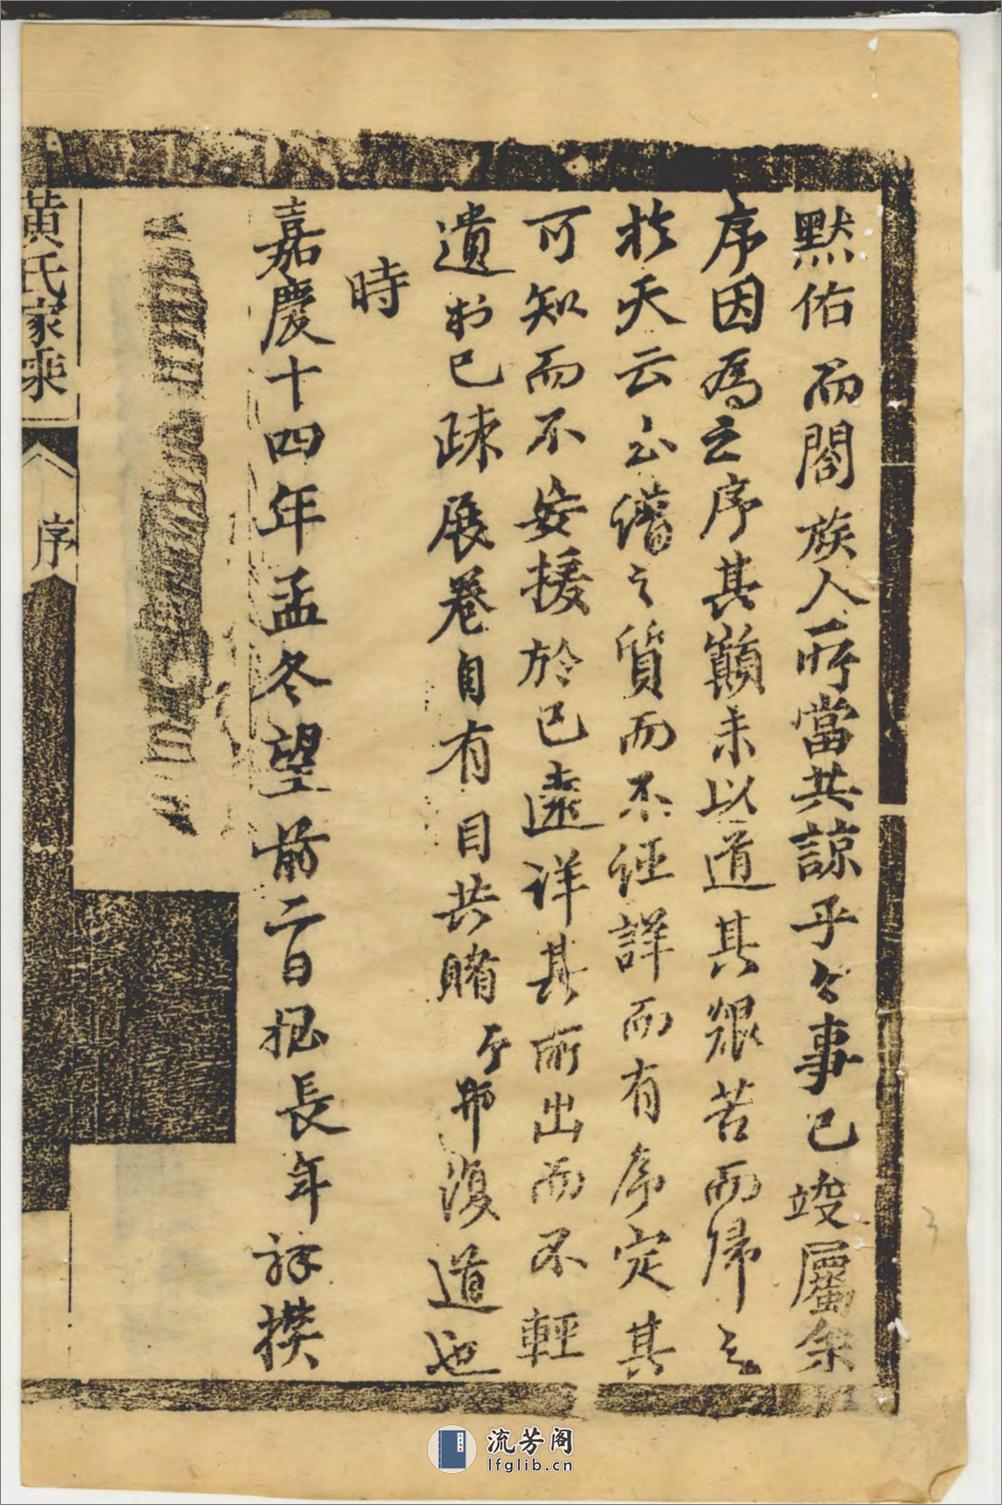 默佑而閤族人所當共諒乎今事已竣屬余
序因爲之序其巔末以道其艱苦而歸之
於天云云譜之質而不俚詳而有序定其
可知而不妄援於已遠詳其所出而不輕
遺於已疎展卷自有目共睹予毋復道也
時
嘉慶十四年孟冬望前二日 長年 撰
黃氏家乘
序
流芳阁
lfglib.cn